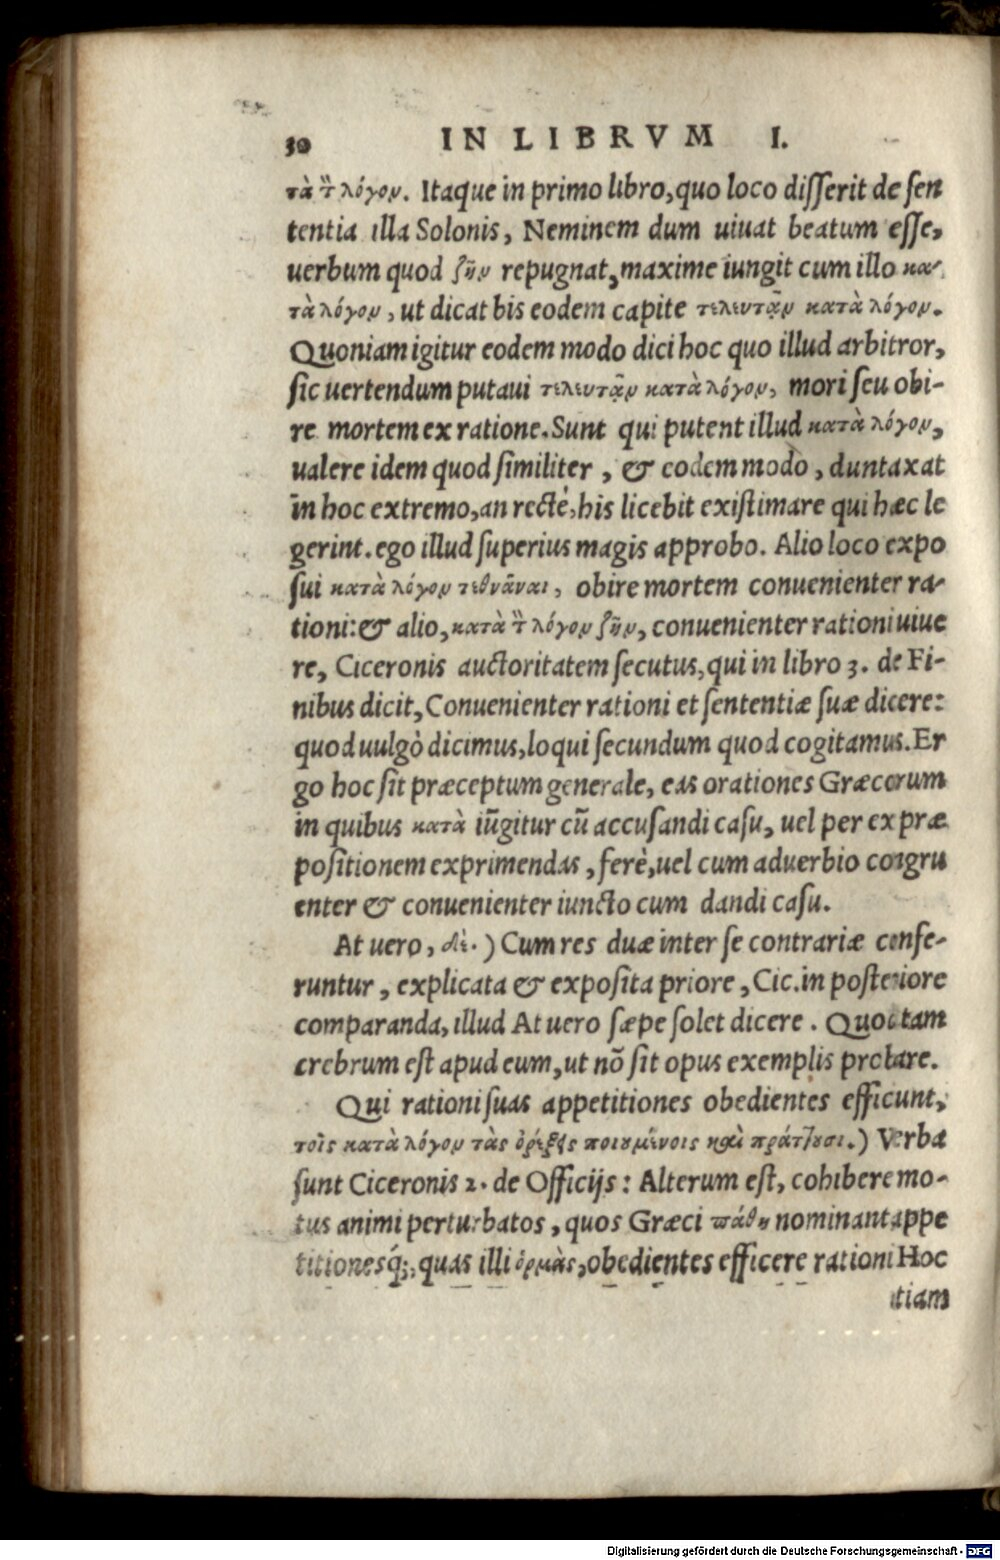 30 IN LIBRVM I.
τὰ τὸν λόγον. Itaque in primo libro, quo loco disserit de sen
tentia illa Solonis, Neminem dum uiuat beatum esse,
uerbum quod ζῆν repugnat, maxime iungit cum illo κα-
τὰ λόγον, ut dicat bis eodem capite τελευτᾷν κατὰ λόγον.
Quoniam igitur eodem modo dici hoc quo illud arbitror,
sic uertendum putaui τελευτᾷν κατὰ λόγον, mori seu obi-
re mortem ex ratione. Sunt qui putent illud κατὰ λόγον,
ualere idem quod similiter, & eodem modo, duntaxat
in hoc extremo, an rectè, his licebit existimare qui hæc le
gerint. ego illud superius magis approbo. Alio loco expo
sui κατὰ λόγον τεθνᾶναι, obire mortem conuenienter ra-
tioni: & alio, κατὰ τὸν λόγον ζῆν, conuenienter rationi uiue
re, Ciceronis auctoritatem secutus, qui in libro 3. de Fi-
nibus dicit, Conuenienter rationi et sententiæ suæ dicere:
quod uulgò dicimus, loqui secundum quod cogitamus. Er
go hoc sit præceptum generale, eas orationes Græcorum
in quibus κατὰ iūgitur cū accusandi casu, uel per ex præ
positionem exprimendas, ferè, uel cum aduerbio congru
enter & conuenienter iuncto cum dandi casu.
At uero, δὲ.) Cum res duæ inter se contrariæ confe-
runtur, explicata & exposita priore, Cic. in posteriore
comparanda, illud At uero sæpe solet dicere. Quod tam
crebrum est apud eum, ut nō sit opus exemplis probare.
Qui rationi suas appetitiones obedientes efficunt,
τοῖς κατὰ λόγον τὰς ὀρέξεις ποιουμένοις καὶ πράττουσι.) Verba
sunt Ciceronis 2. de Officijs: Alterum est, cohibere mo-
tus animi perturbatos, quos Græci πάθη nominant appe
titionesq́;, quas illi ὁρμὰς, obedientes efficere rationi Hoc
etiam